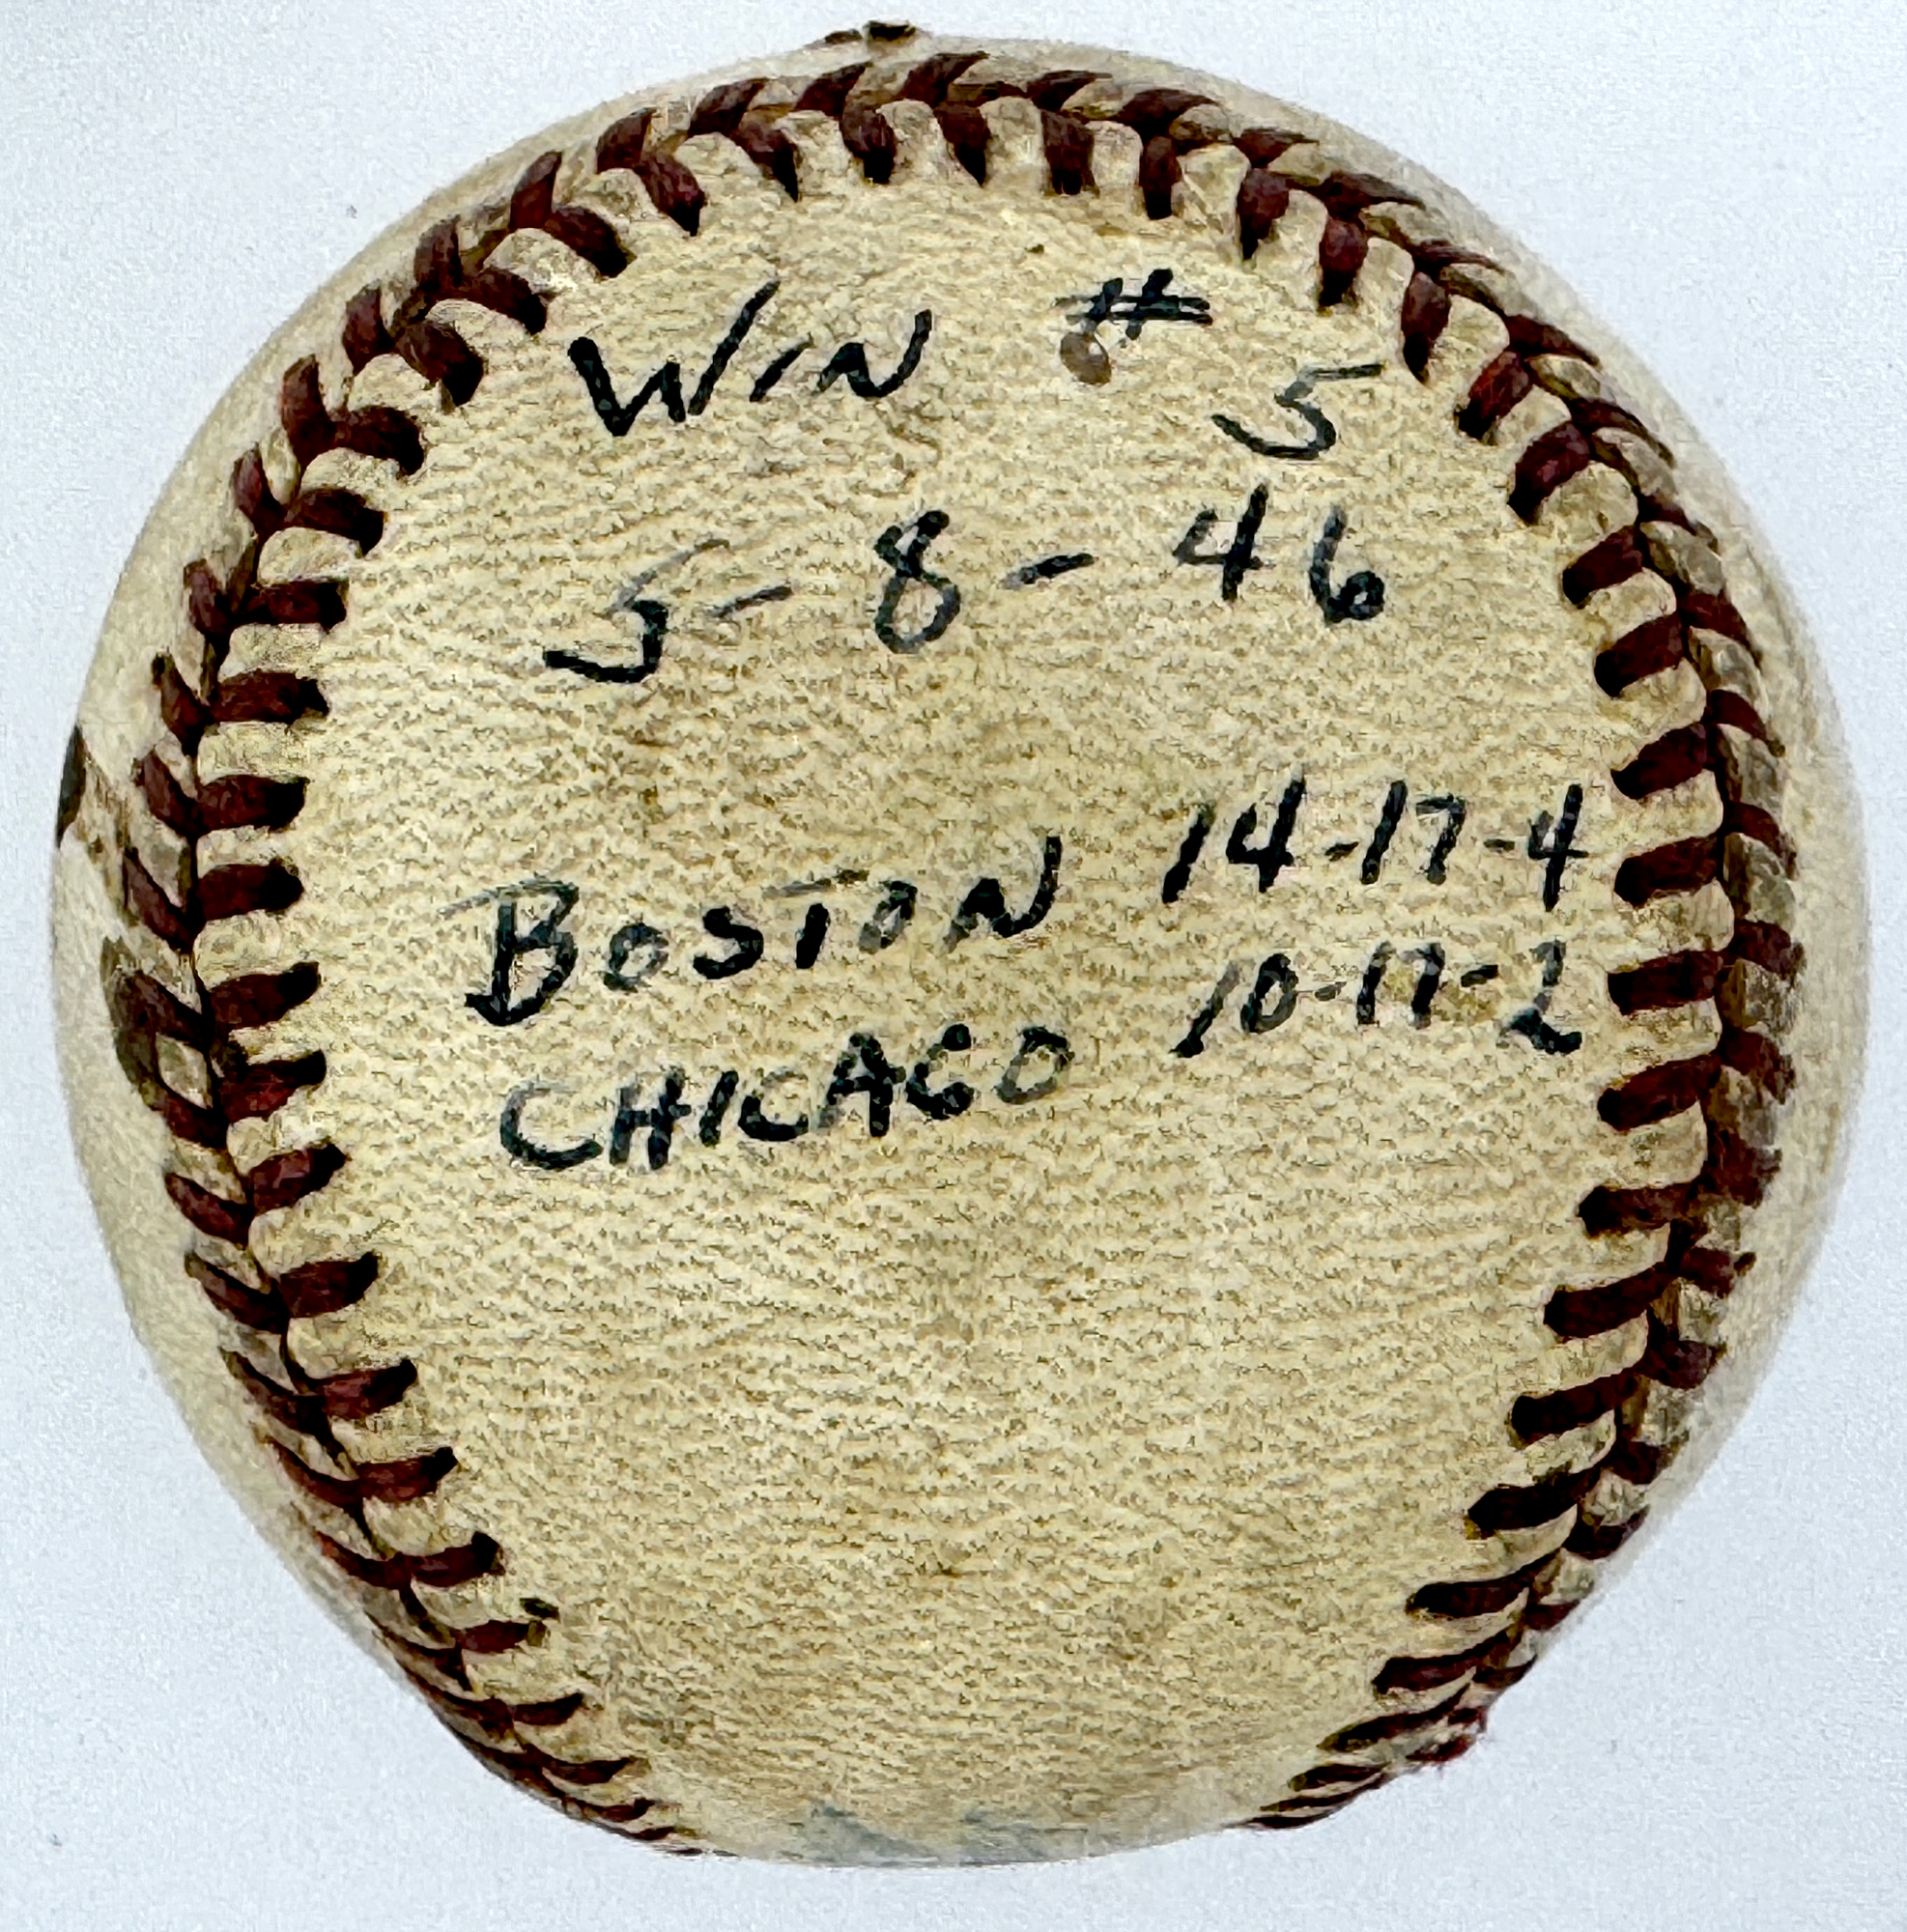 WIN # 5
5-8-46
BOSTON 14-17-4
CHICAGO 10-17-2